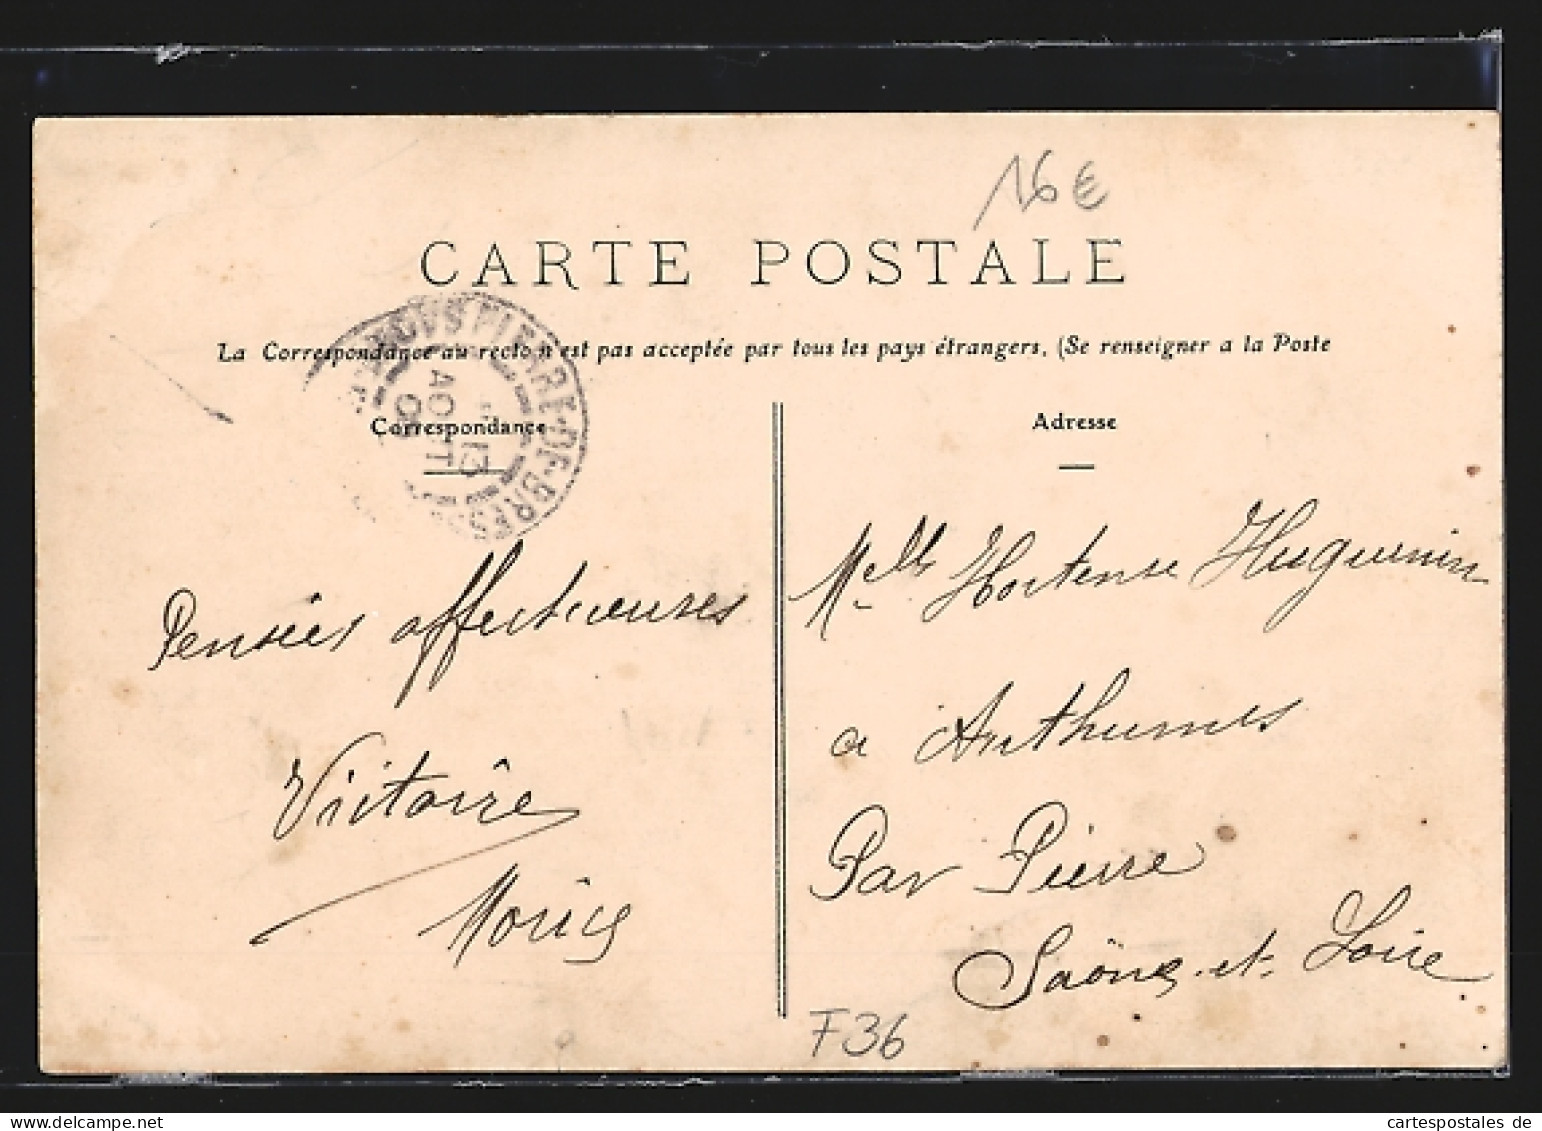 16 €
CARTE POSTALE
La Correspondance au recto n'est pas acceptée par tous les pays étrangers, (Se renseigner a la Poste
PIERRE-DE-BRES
13
AOUT
Correspondance
Adresse
Pensées affectueuses
Victoire
Melle Hortense Huguenin
a Authumes
Par Pierre
Saône-et-Loire
F36
www.delcampe.net
cartespostales de